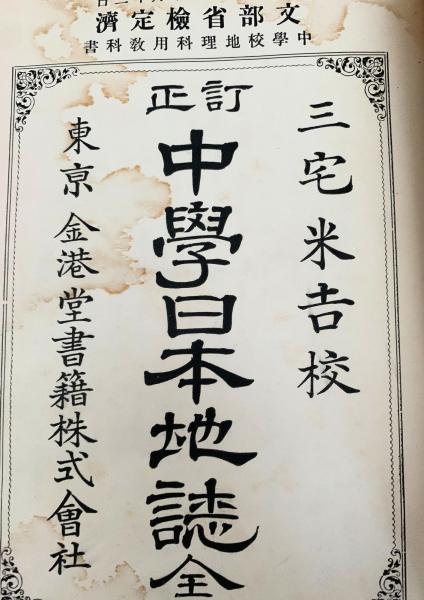 文部省檢定濟
中學校地理科用敎科書
三宅米吉校
訂正
中學日本地誌全
東京金港堂書籍株式會社